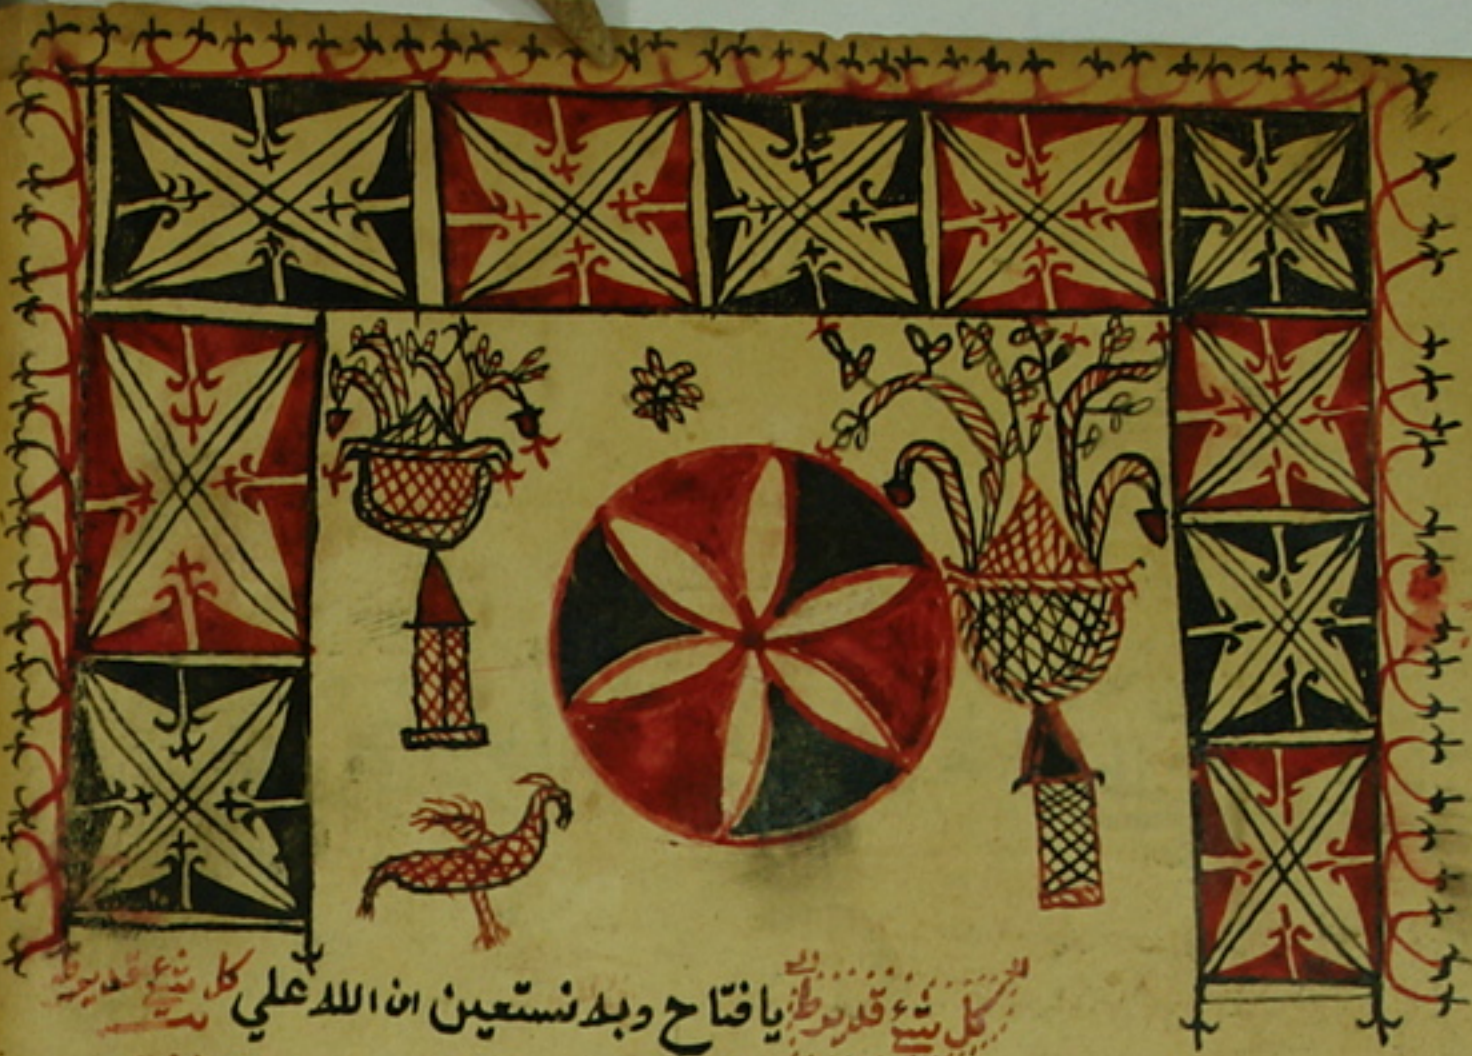 كل شئ قدير يا فتاح وبه نستعين ان الله علي كل شئ قدير